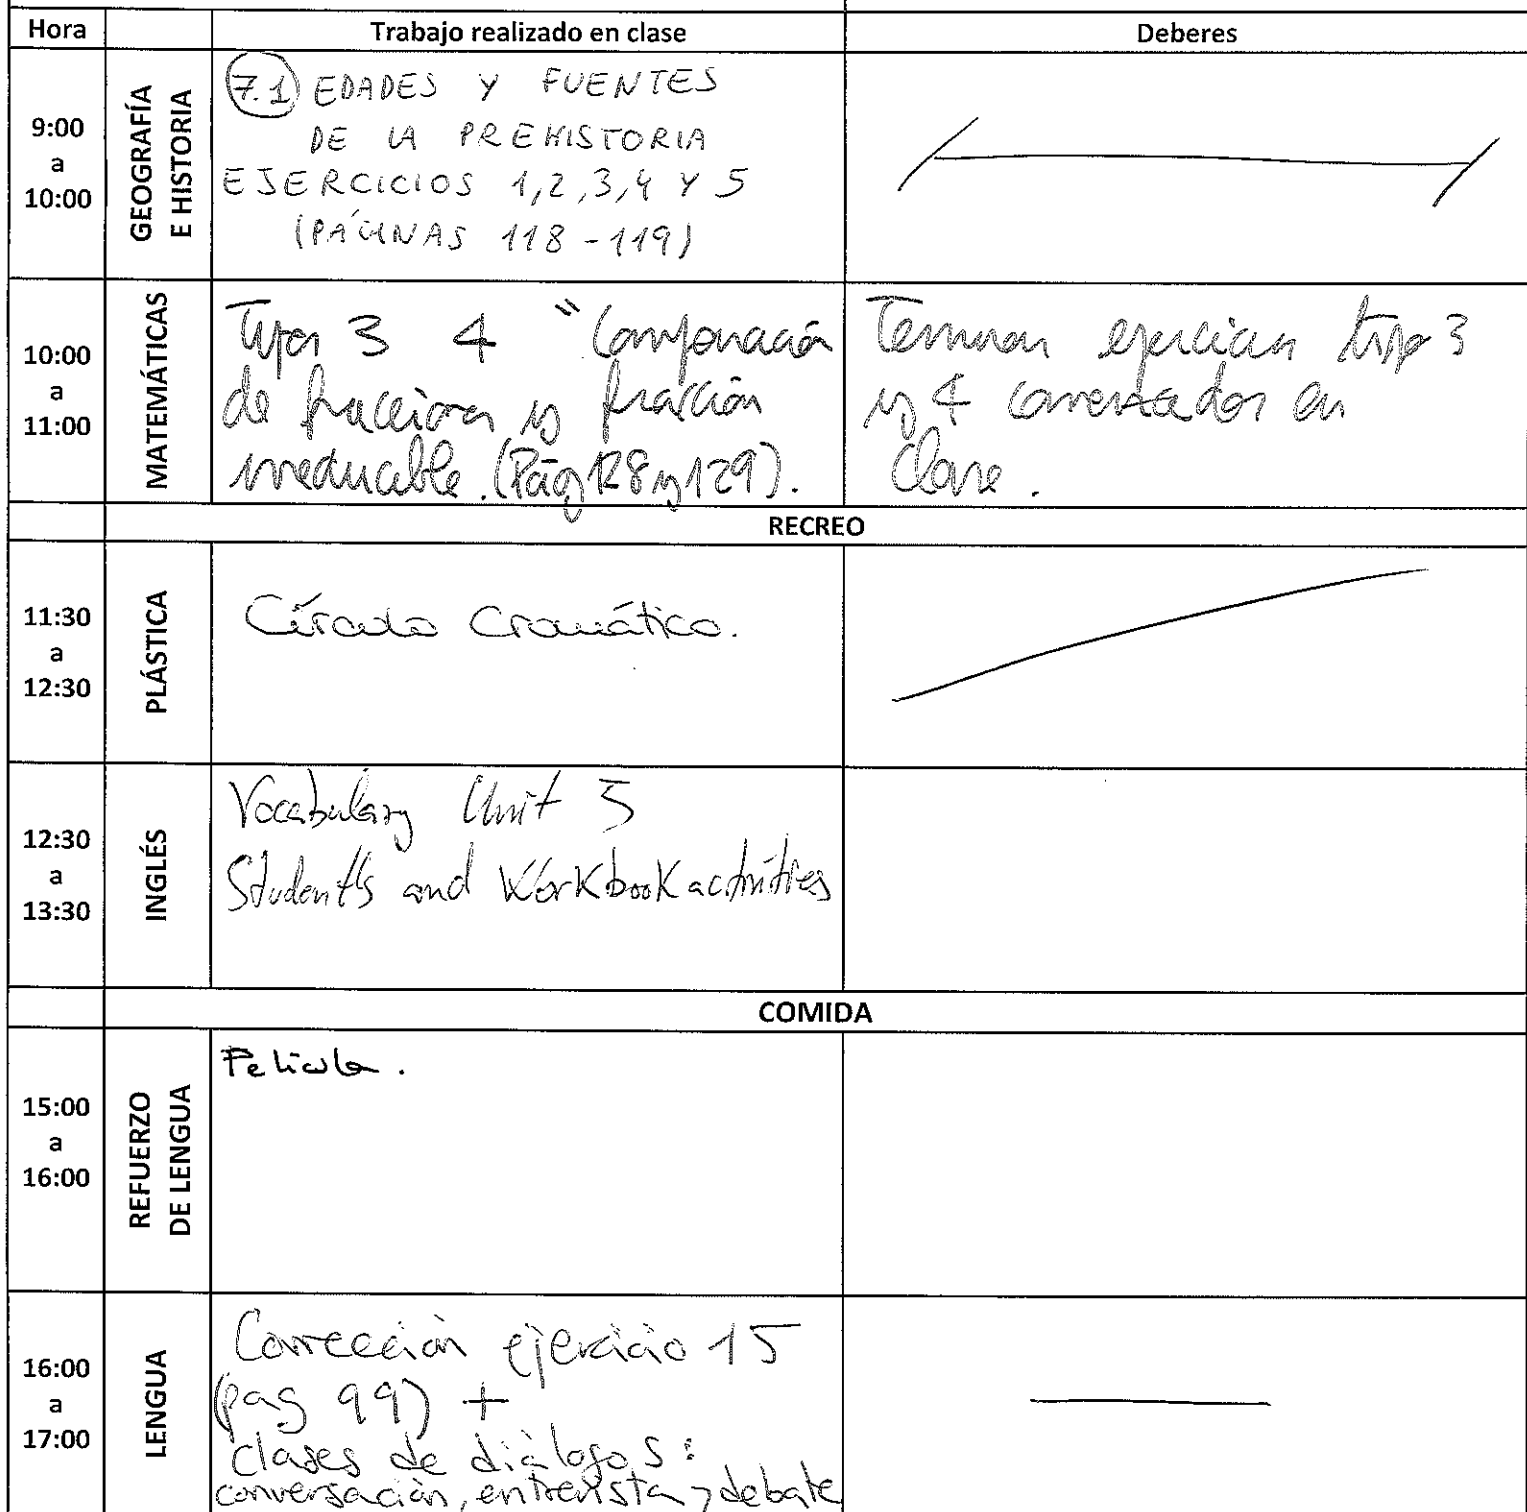 Hora Trabajo realizado en clase Deberes
9:00
a
10:00
GEOGRAFÍA
E HISTORIA
7.1 EDADES Y FUENTES
DE LA PREHISTORIA
EJERCICIOS 1,2,3,4 Y 5
(PÁGINAS 118-119)
10:00
a
11:00
MATEMÁTICAS
3 4 "Comparación
de fracciones y fracción
irreducible. (Pág 128 y 129).
Terminar ejercicios tipo 3
y 4 comentados en
clase.
RECREO
11:30
a
12:30
PLÁSTICA
Círculo Cromático.
12:30
a
13:30
INGLÉS
Vocabulary Unit 5
Student's and Workbook activities
COMIDA
15:00
a
16:00
REFUERZO
DE LENGUA
Película.
16:00
a
17:00
LENGUA
Corrección ejercicio 15
(pag 99) +
clases de diálogos:
conversación, entrevista y debate